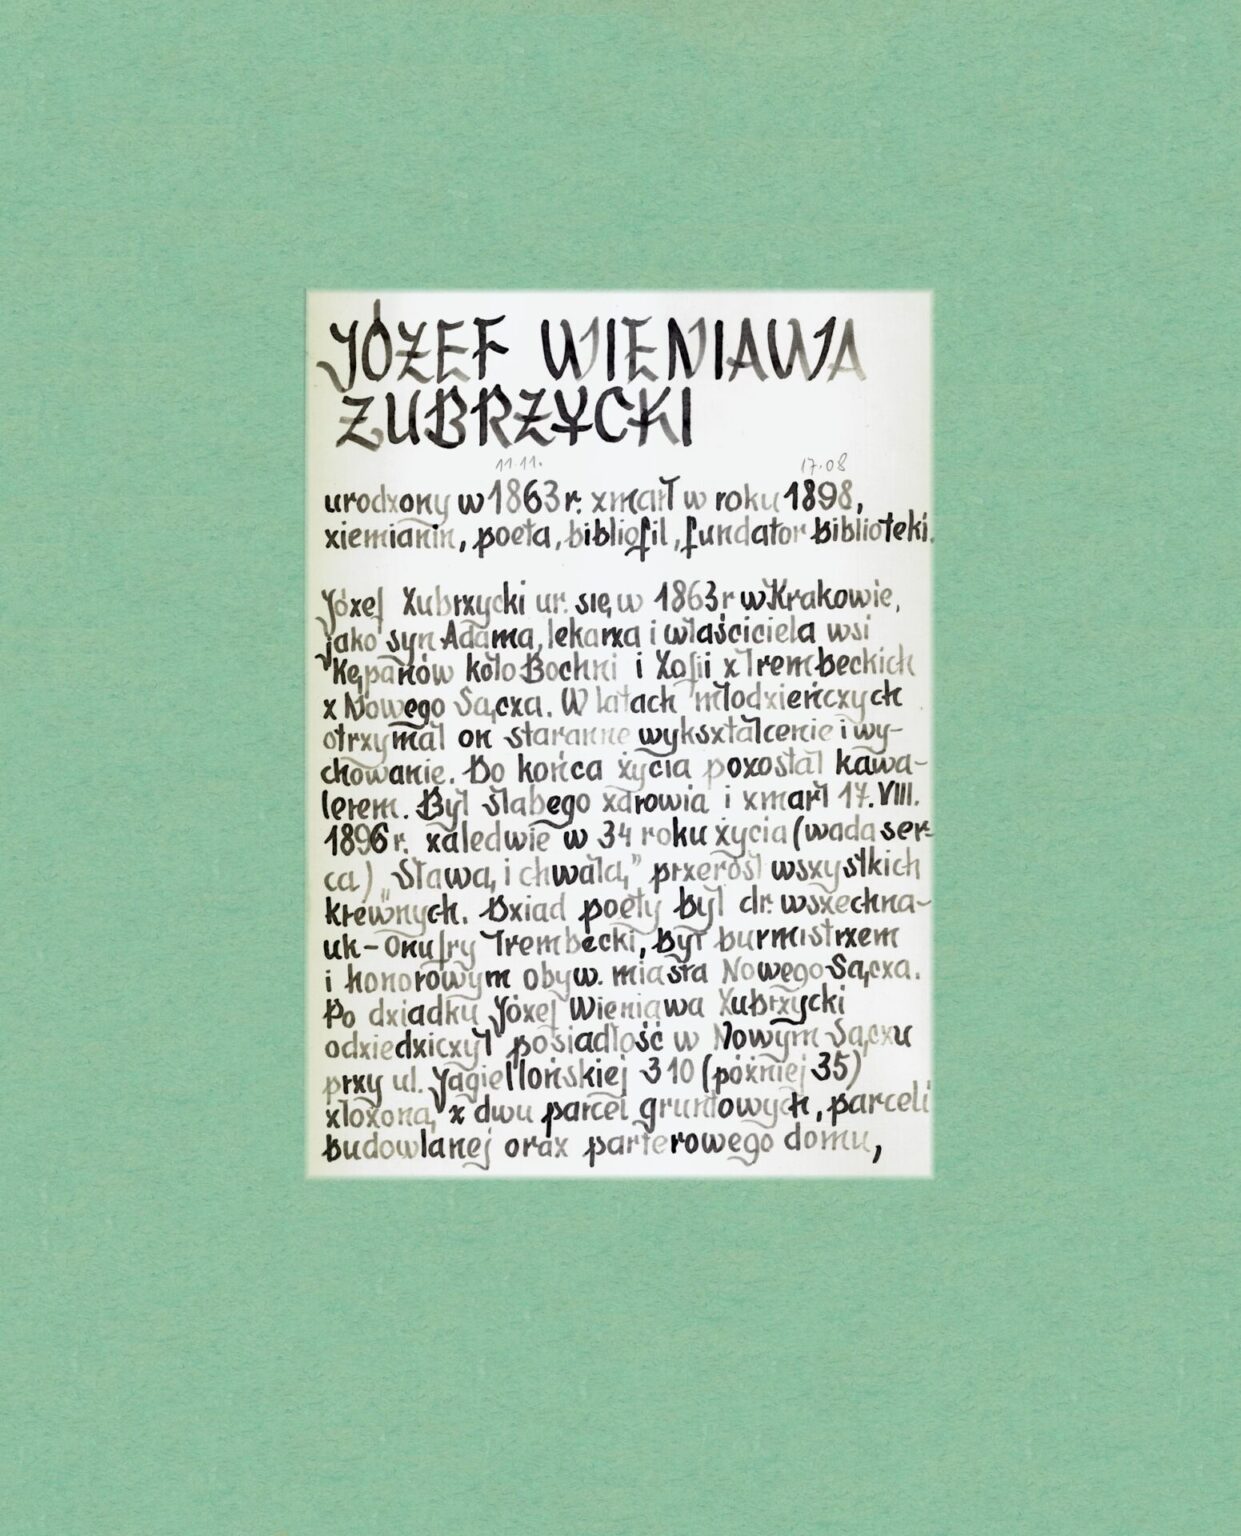 JÓZEF WIENIAWA
ZUBRZYCKI
11.11. 17.08
urodzony w 1863 r. zmarł w roku 1898,
ziemianin, poeta, bibliofil, fundator biblioteki.
Józef Zubrzycki ur. się w 1863 r w Krakowie,
jako syn Adama, lekarza i właściciela wsi
Kępanów koło Bochni i Zofii z Trembeckich
z Nowego Sącza. W latach młodzieńczych
otrzymał on staranne wykształcenie i wy-
chowanie. Do końca życia pozostał kawa-
lerem. Był słabego zdrowia i zmarł 17.VIII.
1896 r. zaledwie w 34 roku życia (wada ser-
ca) „Sławą i chwałą" przerósł wszystkich
krewnych. Dziad poety był dr. wszechna-
uk - Onufry Trembecki, był burmistrzem
i honorowym obyw. miasta Nowego Sącza.
Po dziadku Józef Wieniawa Zubrzycki
odziedziczył posiadłość w Nowym Sączu
przy ul. Jagiellońskiej 310 (później 35)
złożoną z dwu parcel gruntowych, parceli
budowlanej oraz parterowego domu,